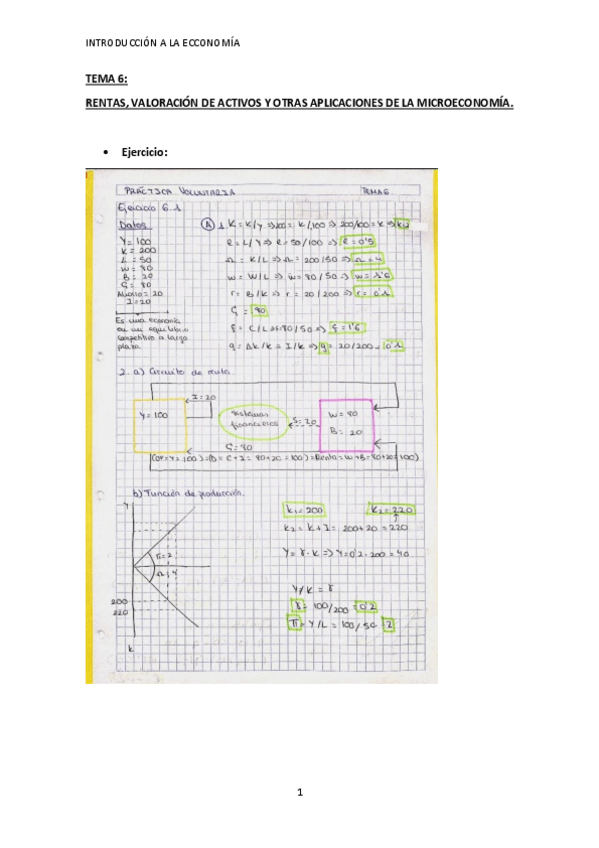 INTRODUCCIÓN A LA ECCONOMÍA
TEMA 6:
RENTAS, VALORACIÓN DE ACTIVOS Y OTRAS APLICACIONES DE LA MICROECONOMÍA.
• Ejercicio:
PRÁCTICA VOLUNTARIA TEMA 6
Ejercicio 6.1
Datos
Y = 100
K = 200
L = 50
W = 80
B = 20
C = 80
Ahorro = 20
I = 20
Es una economía
en un equilibrio
competitivo a largo
plazo.
A 1.
R = L/Y => R = 50/100 => R = 0'5
Ω = K/L => Ω = 200/50 => Ω = 4
w = W/L => w = 80/50 => w = 1'6
r = B/K => r = 20/200 => r = 0'1
80
g = Δk/k = I/k => g = 20/200 = 0'1
2. a) Circuito de renta.
I = 20
Y = 100
sistemas
financieros
S = 20
W = 80
B = 20
C = 80
b) Función de producción.
Y
π = 2
Ω = 4
200
220
K
k₁ = 200
k₂ = 220
k₂ = k + I = 200 + 20 = 220
Y = γ · K => Y = 0'2 · 200 = 40
Y/K = γ
γ = 100/200 = 0'2
π = Y/L = 100/50 = 2
1